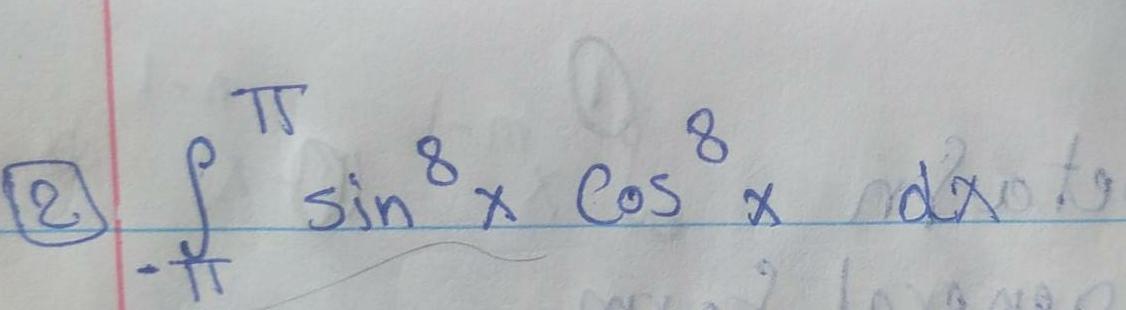 2 ∫_{-π}^{π} sin⁸x cos⁸x dx